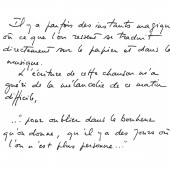 Il y a parfois des instants magiques
où ce que l'on ressent se traduit
directement sur le papier et dans la
musique.
L'écriture de cette chanson m'a
guéri de la mélancolie de ce matin
difficile,
..."pour oublier dans le bonheur
qu'ça donne, qu'il y a des jours où
l'on n'est plus personne..."